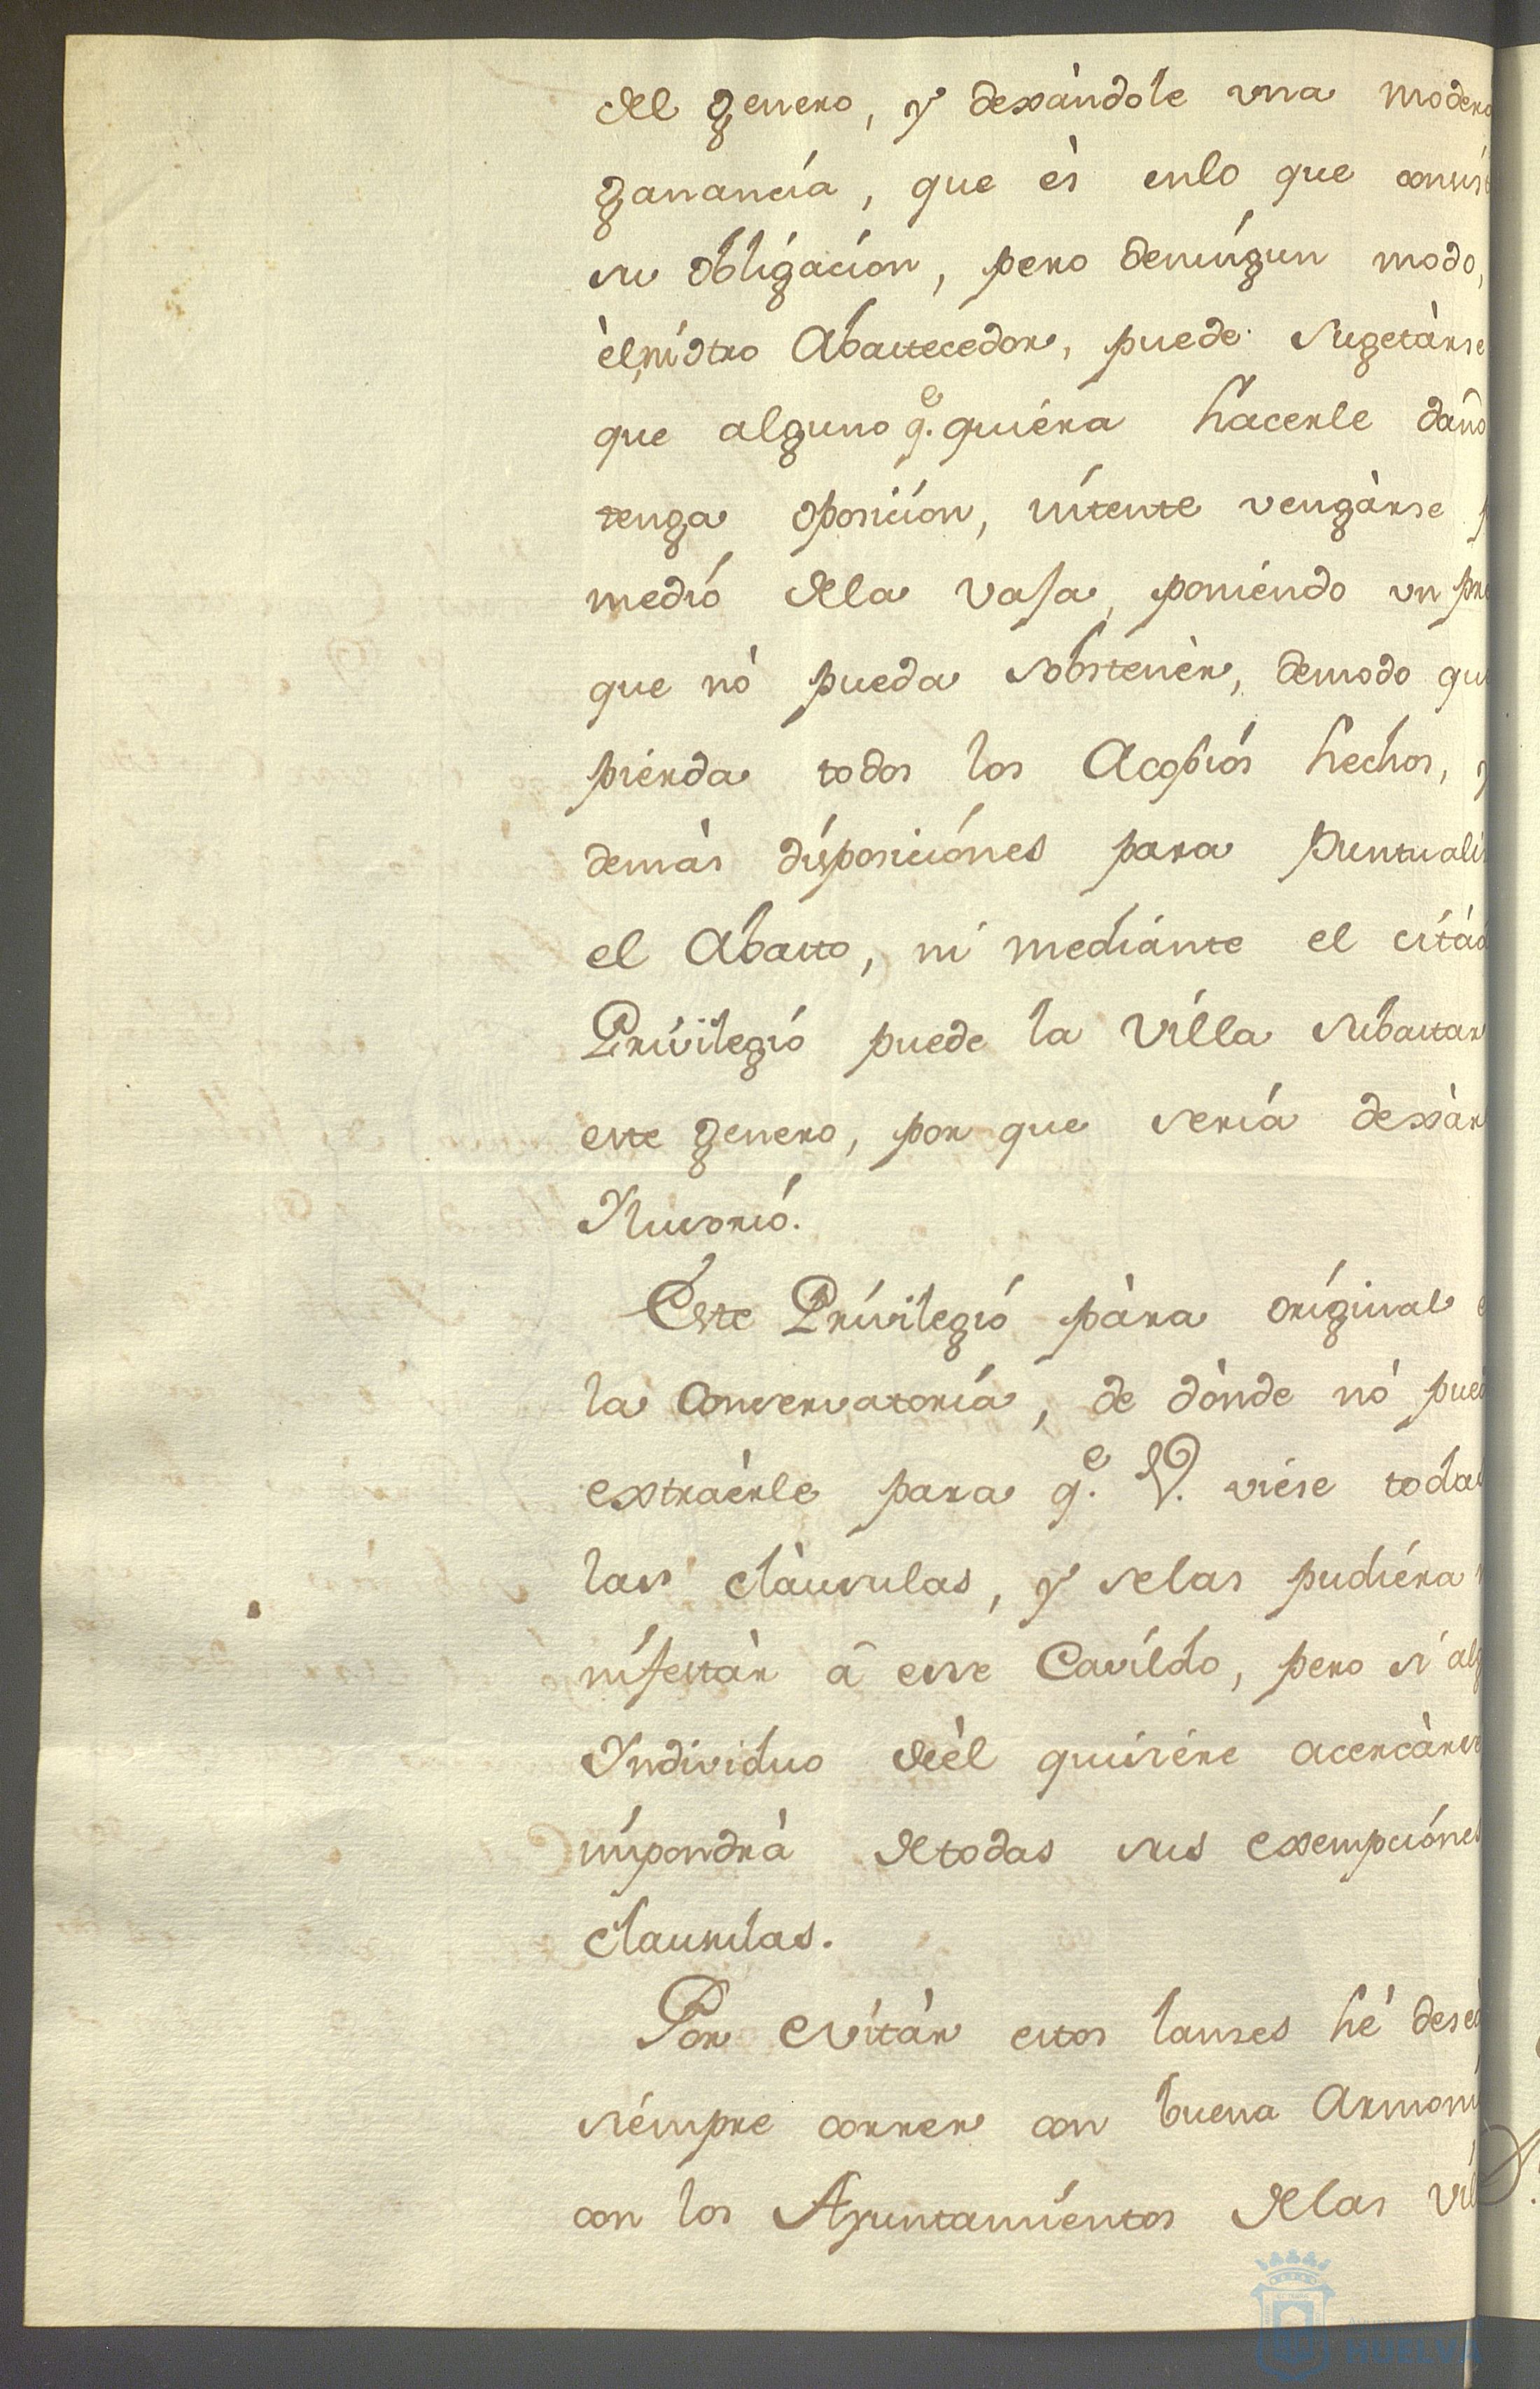 del genero, y dexàndole una modera
ganancía, que ès enlo que consist
su obligacíon, pero deníngun modo,
èl, ní otro Abastecedor, puede sugetàrse
que alguno q.e quiéra hacerle daño
tenga oposicíon, íntente vengàrse p
medió dela vaja, poniéndo un pre
que nò pueda sobstenèr, demodo que
piérda todos los Acopiós hechos, y
demàs dísposiciónes para Puntualiz
el Abasto, ni mediánte el cítád
Prívilegió puede la Vílla subastar
este genero, por que sería dexàr
Ylusorió.
Éste Prívilegió pàra oríginal e
la Conservatoría, de dònde nò pued
extraèrle para q.e V. viése todas
las clàusulas, y selas pudiéra m
nífestàr â ese Cavíldo, pero sí alg
Yndividuo deèl quisiére acercàrse
ímpondrà detodas sus exempciónes
clausulas.
Por evítàr estos lanzes hé desea
siémpre correr con buena Armoní
con los Ayuntamiéntos delas Vil
HUELVA